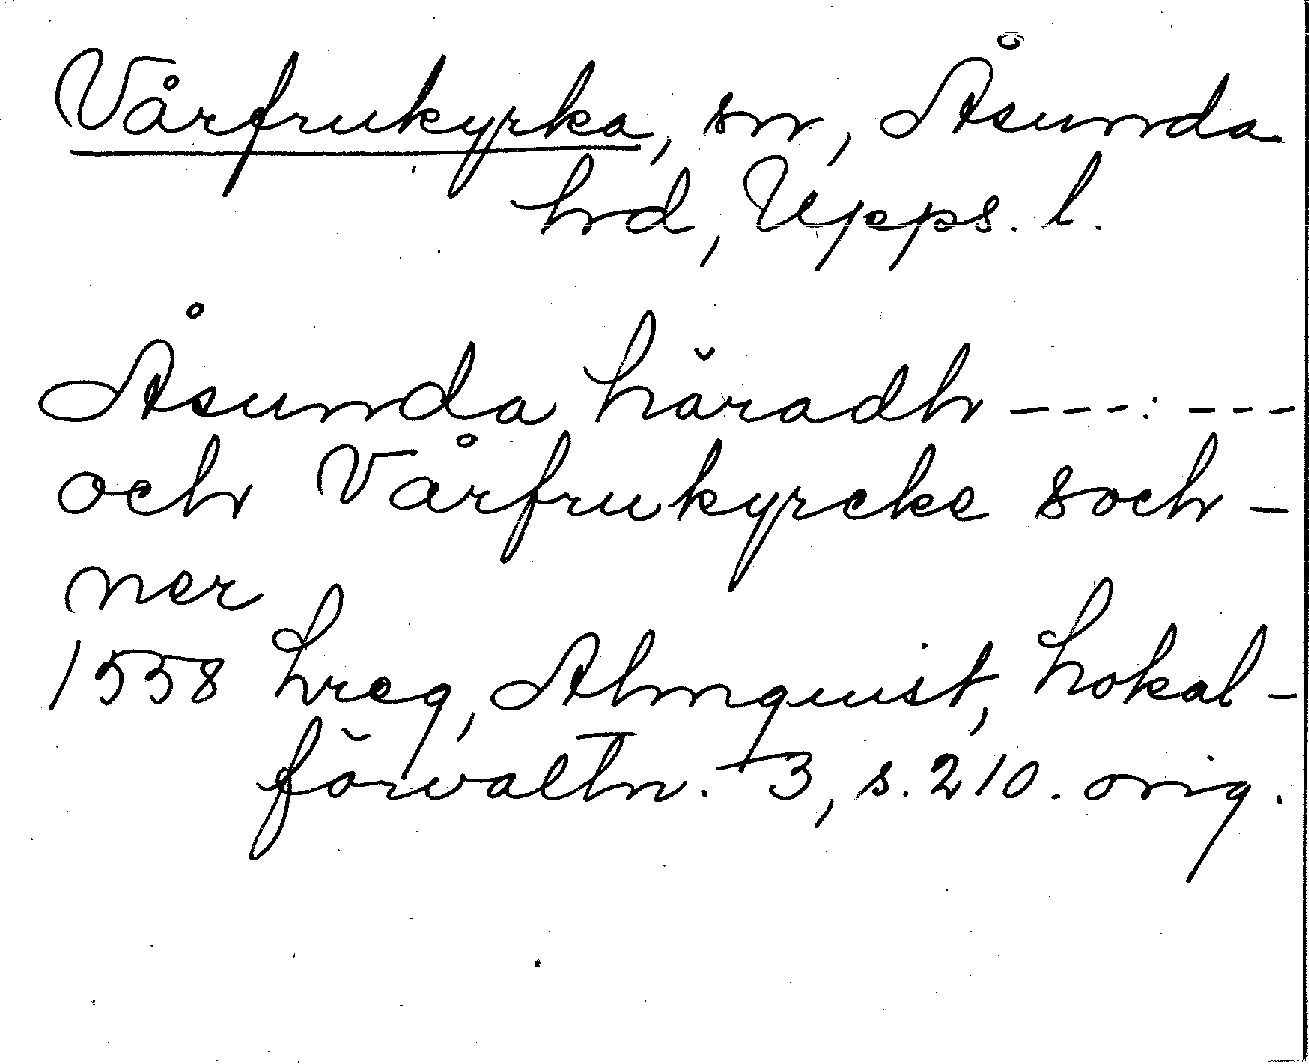 Vårfrukyrka, sn, Åsunda
hd, Upps. l.
Åsunda häradh ---:---
och Vårfrukyrcke soch-
ner
1558 hreg, Almquist, Lokal-
förvaltn. 3, s. 210. orig.